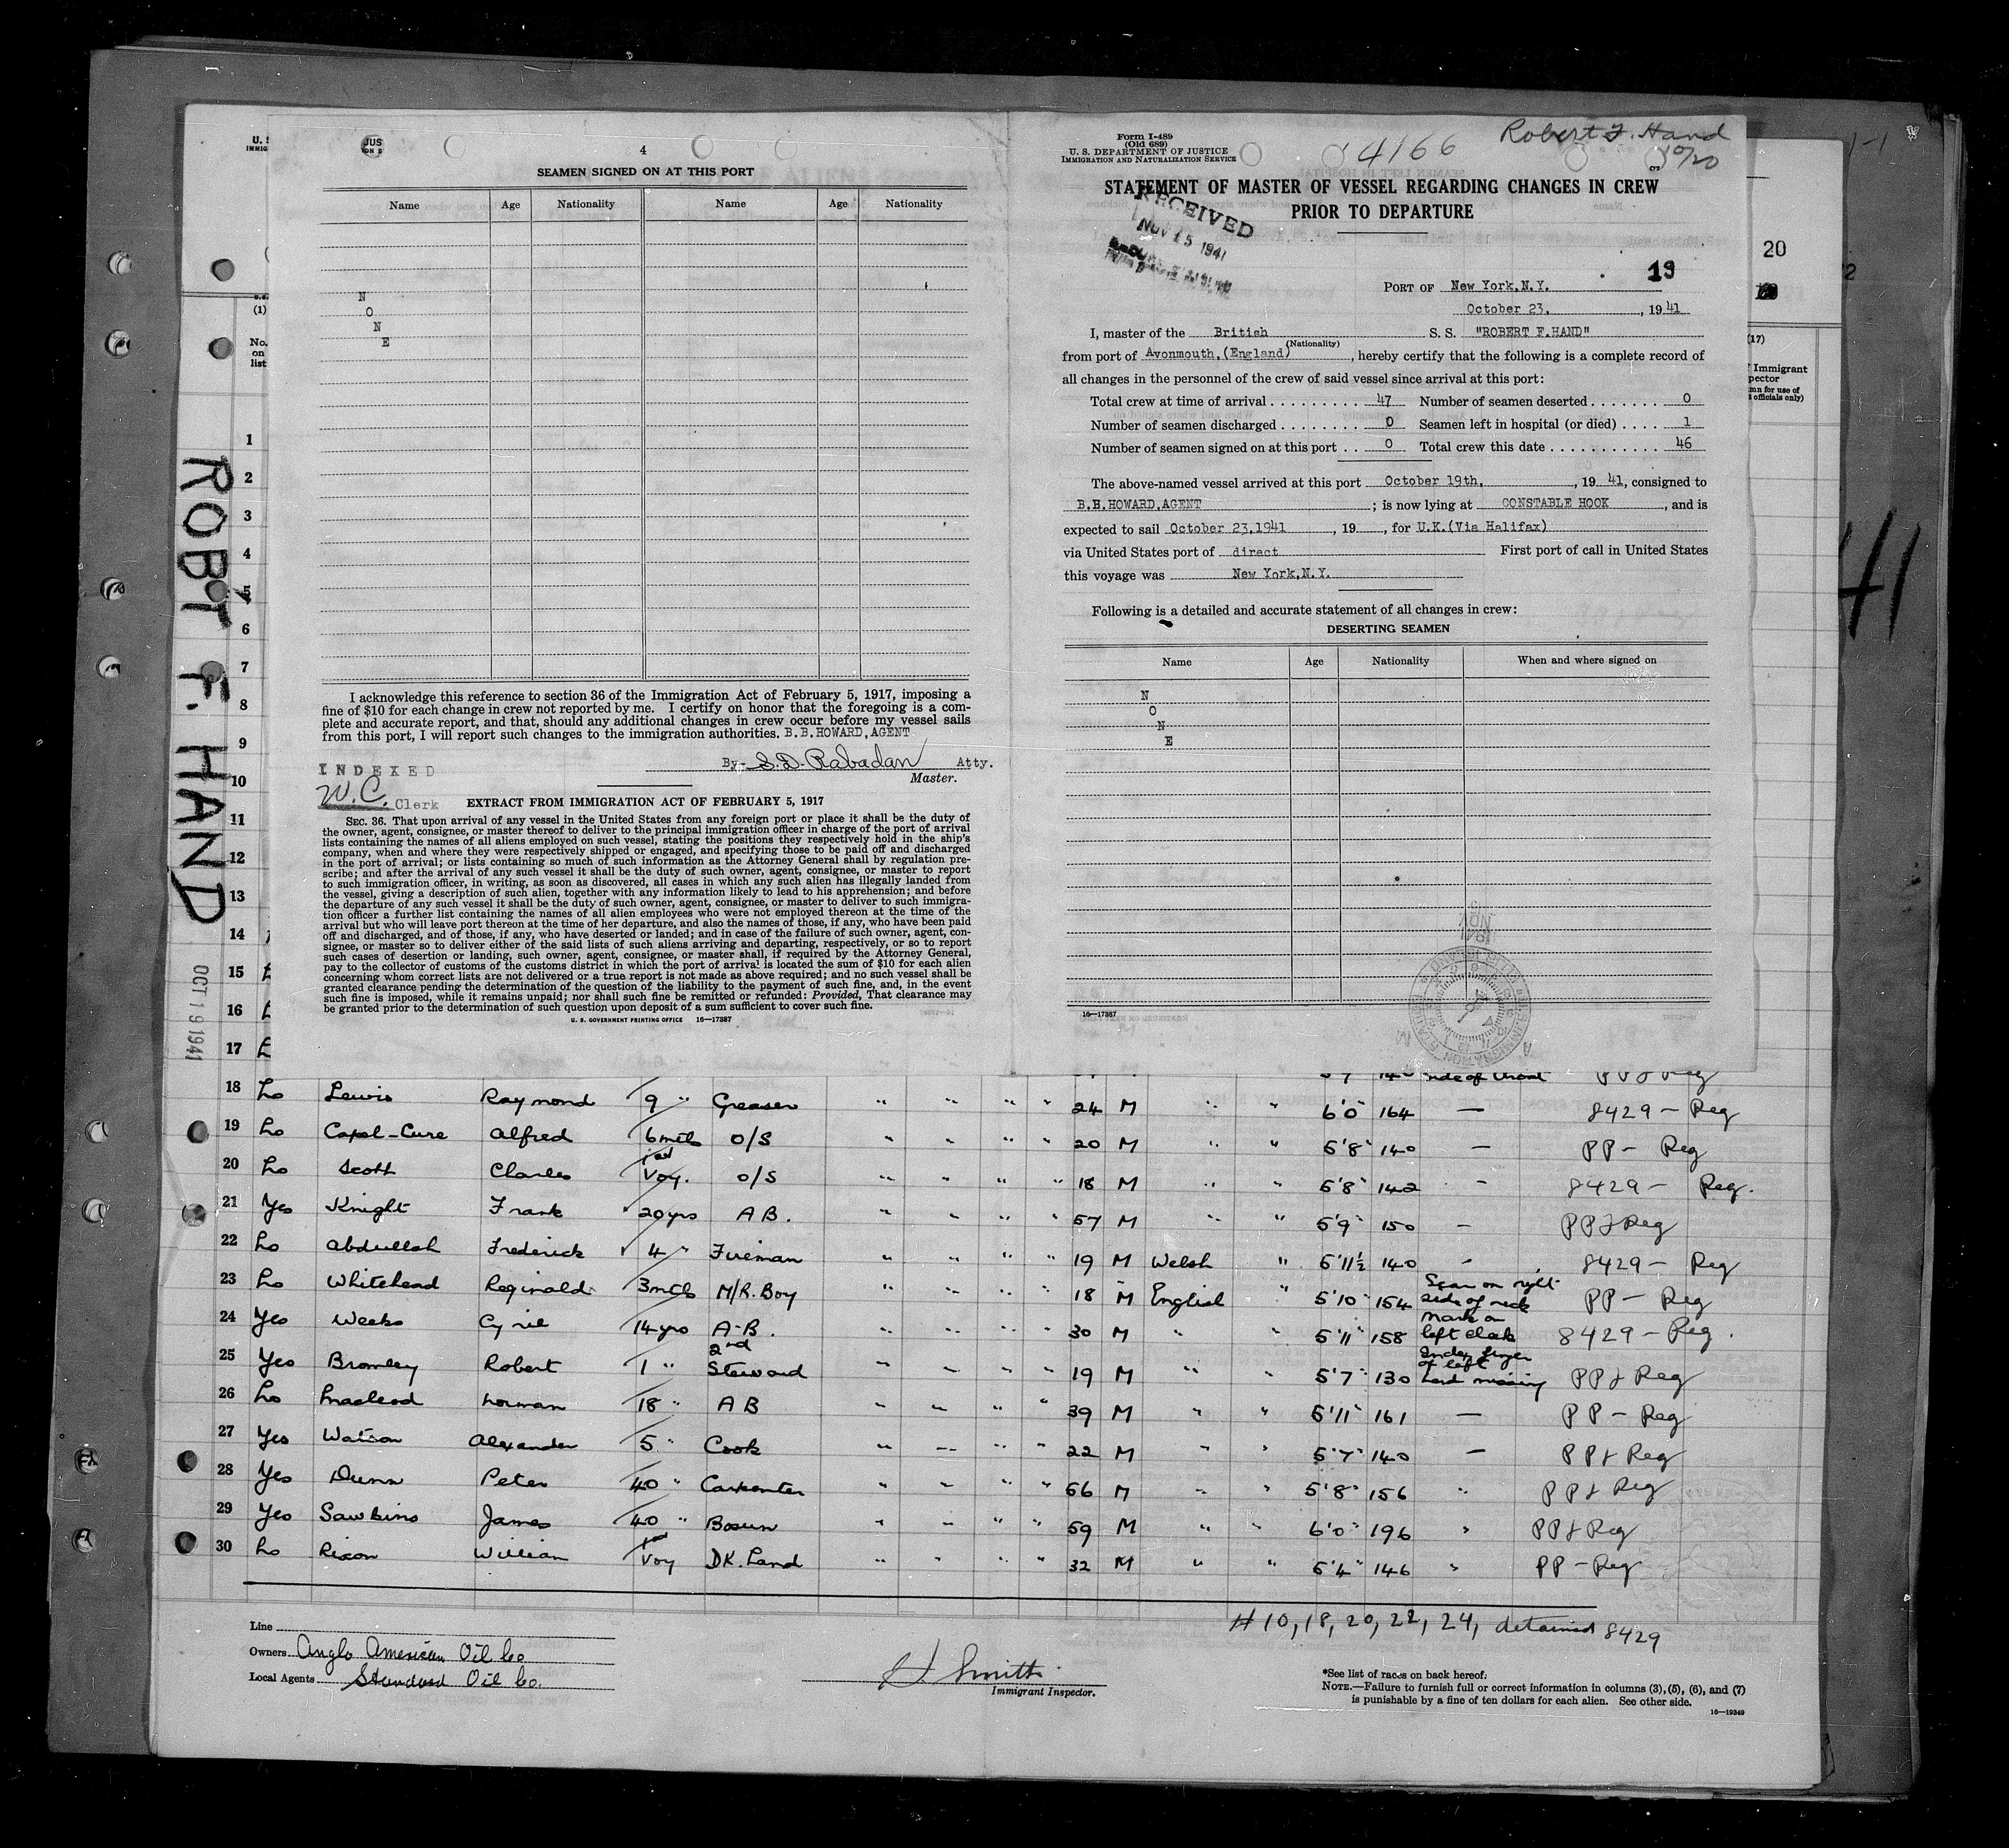 4
SEAMEN SIGNED ON AT THIS PORT
Name Age Nationality Name Age Nationality
N
O
N
E
I acknowledge this reference to section 36 of the Immigration Act of February 5, 1917, imposing a
fine of $10 for each change in crew not reported by me. I certify on honor that the foregoing is a com-
plete and accurate report, and that, should any additional changes in crew occur before my vessel sails
from this port, I will report such changes to the immigration authorities. B.B.HOWARD,AGENT
By- S.D. Rabadan Atty.
Master.
INDEXED
W.C. Clerk
EXTRACT FROM IMMIGRATION ACT OF FEBRUARY 5, 1917
SEC. 36. That upon arrival of any vessel in the United States from any foreign port or place it shall be the duty of
the owner, agent, consignee, or master thereof to deliver to the principal immigration officer in charge of the port of arrival
lists containing the names of all aliens employed on such vessel, stating the positions they respectively hold in the ship's
company, when and where they were respectively shipped or engaged, and specifying those to be paid off and discharged
in the port of arrival; or lists containing so much of such information as the Attorney General shall by regulation pre-
scribe; and after the arrival of any such vessel it shall be the duty of such owner, agent, consignee, or master to report
to such immigration officer, in writing, as soon as discovered, all cases in which any such alien has illegally landed from
the vessel, giving a description of such alien, together with any information likely to lead to his apprehension; and before
the departure of any such vessel it shall be the duty of such owner, agent, consignee, or master to deliver to such immigra-
tion officer a further list containing the names of all alien employees who were not employed thereon at the time of the
arrival but who will leave port thereon at the time of her departure, and also the names of those, if any, who have been paid
off and discharged, and of those, if any, who have deserted or landed; and in case of the failure of such owner, agent, con-
signee, or master so to deliver either of the said lists of such aliens arriving and departing, respectively, or so to report
such cases of desertion or landing, such owner, agent, consignee, or master shall, if required by the Attorney General,
pay to the collector of customs of the customs district in which the port of arrival is located the sum of $10 for each alien
concerning whom correct lists are not delivered or a true report is not made as above required; and no such vessel shall be
granted clearance pending the determination of the question of the liability to the payment of such fine, and, in the event
such fine is imposed, while it remains unpaid; nor shall such fine be remitted or refunded: Provided, That clearance may
be granted prior to the determination of such question upon deposit of a sum sufficient to cover such fine.
U. S. GOVERNMENT PRINTING OFFICE 16—17387
Form I-489
(Old 689)
U. S. DEPARTMENT OF JUSTICE
IMMIGRATION AND NATURALIZATION SERVICE
4166
Robert F. Hand
10/20
STATEMENT OF MASTER OF VESSEL REGARDING CHANGES IN CREW
PRIOR TO DEPARTURE
RECEIVED
NOV 15 1941
19
PORT OF New York,N.Y.
October 23, , 1941
I, master of the British S. S. "ROBERT F.HAND"
(Nationality)
from port of Avonmouth,(England) , hereby certify that the following is a complete record of
all changes in the personnel of the crew of said vessel since arrival at this port:
Total crew at time of arrival 47 Number of seamen deserted 0
Number of seamen discharged 0 Seamen left in hospital (or died) 1
Number of seamen signed on at this port 0 Total crew this date 46
The above-named vessel arrived at this port October 19th, , 19 41, consigned to
B.B.HOWARD,AGENT ; is now lying at CONSTABLE HOOK , and is
expected to sail October 23,1941 , 19 , for U.K.(Via Halifax)
via United States port of direct First port of call in United States
this voyage was New York,N.Y.
Following is a detailed and accurate statement of all changes in crew:
DESERTING SEAMEN
Name Age Nationality When and where signed on
N
O
N
E
16—17387
20
(17)
Immigrant
officials only)
(1)
No.
on
list
1
2
3
4
5
6
7
8
9
10
11
12
13
14
15
16
17
ROBT F. HAND
OCT 19 1941
41
18 No Lewis Raymond 9 " Greaser " " " " 24 M " " 6'0" 164 — 8429 - Reg
19 No Capel-Cure Alfred 6mths O/S " " " " 20 M " " 5'8" 140 — PP - Reg
20 No Scott Charles 1st Voy. O/S " " " " 18 M " " 5'8" 142 - 8429 - Reg.
21 Yes Knight Frank 20yrs A B. " " " " 57 M " " 5'9" 150 - PP & Reg
22 No Abdullah Frederick 4 " Fireman " " " " 19 M Welsh " 5'11½ 140 - 8429 - Reg
23 No Whitehead Reginald 3mths M/R. Boy " " " " 18 M English " 5'10" 154 Scar on right side of neck PP - Reg
24 Yes Weeks Cyril 14yrs A-B. " " " " 30 M " " 5'11" 158 Mark on left cheek 8429 - Reg.
25 Yes Bromley Robert 1 " 2nd Steward " " " " 19 M " " 5'7" 130 Index finger of left hand missing PP & Reg
26 No Macleod Norman 18 " A B " " " " 39 M " " 5'11" 161 — PP - Reg
27 Yes Watson Alexander 5 " Cook " " " " 22 M " " 5'7" 140 — PP & Reg
28 Yes Dunn Peter 40 " Carpenter " " " " 56 M " " 5'8" 156 " PP & Reg
29 Yes Sawkins James 40 " Bosun " " " " 59 M " " 6'0" 196 " PP & Reg
30 No Rixon William 1st Voy DK. Hand " " " " 32 M " " 5'4" 146 " PP - Reg
# 10, 18, 20, 22, 24, detained 8429
Line
Owners Anglo American Oil Co
Local Agents Standard Oil Co.
H Smith
Immigrant Inspector.
*See list of races on back hereof.
NOTE.—Failure to furnish full or correct information in columns (3), (5), (6), and (7)
is punishable by a fine of ten dollars for each alien. See other side.
16—19349